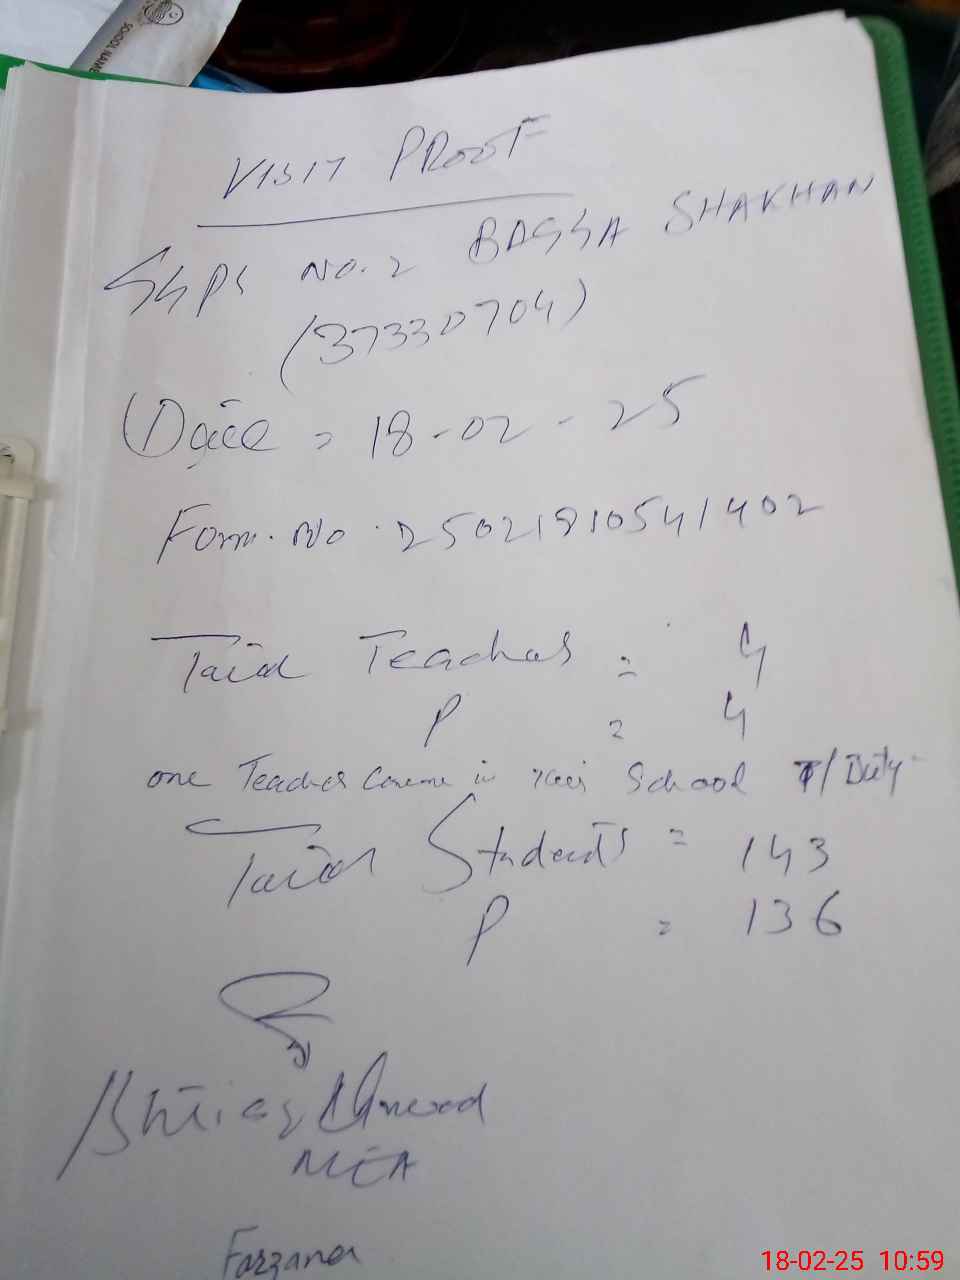 SCHOOL NAME
VISIT PROOF
GGPS NO. 2 BAGGA SHAKHAN
(37330704)
Date = 18-02-25
Form. No. 25021810541402
Total Teachers = 4
P = 4
one Teacher in School T/Duty
Total Students = 143
P = 136
Ahmad
MEA
Farzana
18-02-25 10:59